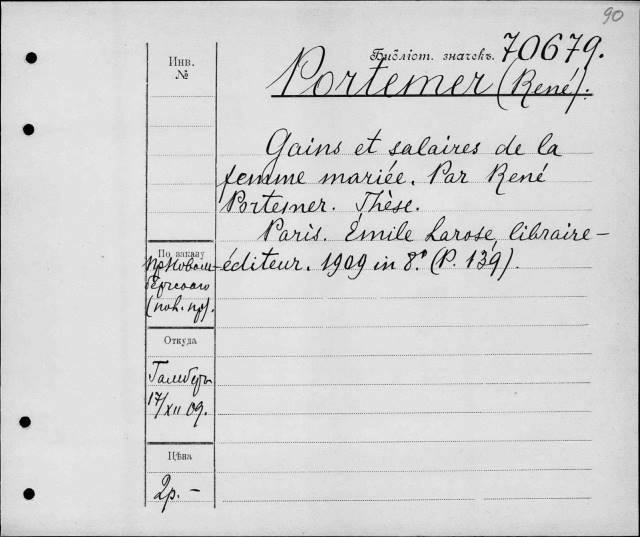 90
Библіот. значекъ. 70679.
Portemer (René).
Инв.
№
Gains et salaires de la
femme mariée. Par René
Portemer. Thèse.
Paris. Émile Larose, libraire-
éditeur. 1909 in 8.° (P. 139).
По заказу
Откуда
17/XII 09.
Цѣна
2р. -